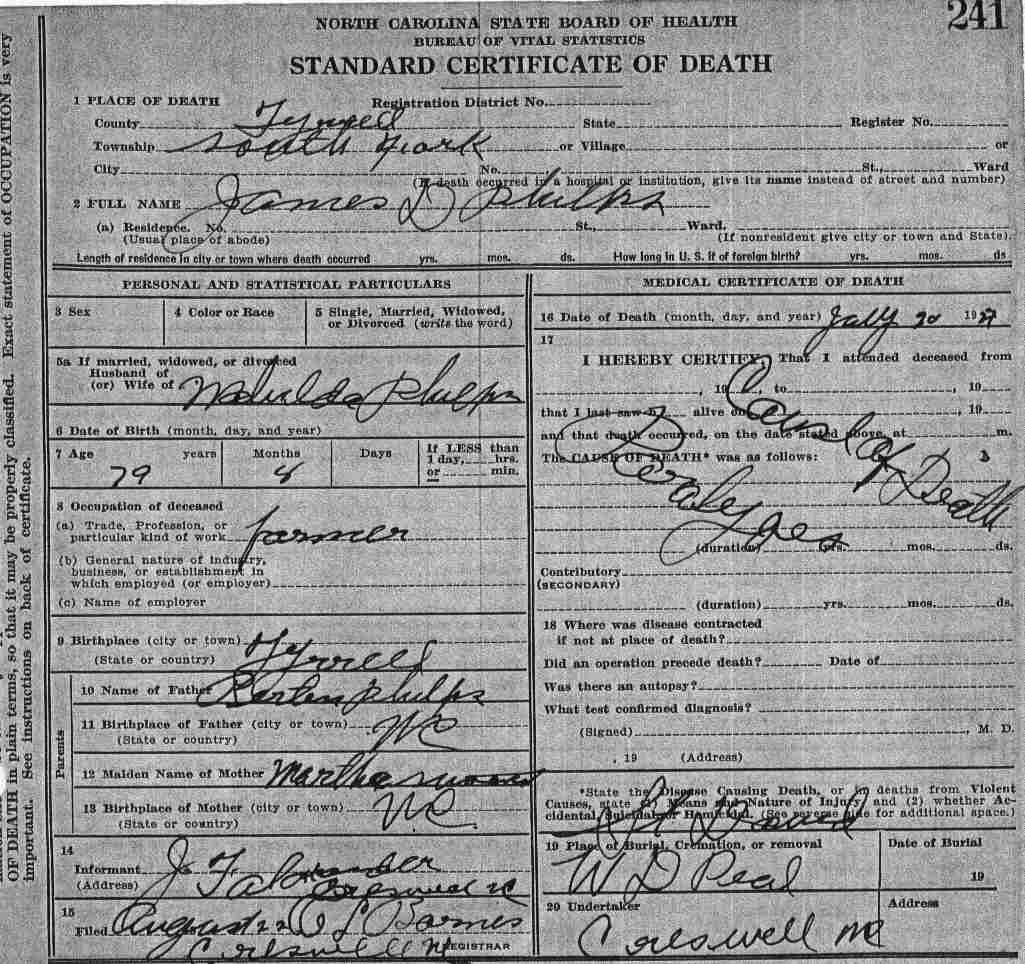 241
NORTH CAROLINA STATE BOARD OF HEALTH
BUREAU OF VITAL STATISTICS
STANDARD CERTIFICATE OF DEATH
1 PLACE OF DEATH Registration District No.
County Tyrrell State Register No.
Township South Fork or Village or
City No. St., Ward
(If death occurred in a hospital or institution, give its name instead of street and number)
2 FULL NAME James D Phelps
(a) Residence. No. St., Ward.
(Usual place of abode) (If nonresident give city or town and State).
Length of residence in city or town where death occurred yrs. mos. ds. How long in U. S. if of foreign birth? yrs. mos. ds
PERSONAL AND STATISTICAL PARTICULARS
3 Sex 4 Color or Race 5 Single, Married, Widowed, or Divorced (write the word)
5a If married, widowed, or divorced
Husband of
(or) Wife of Phelps
6 Date of Birth (month, day, and year)
7 Age years Months Days If LESS than
1 day, hrs.
or min.
79 8
8 Occupation of deceased
(a) Trade, Profession, or
particular kind of work farmer
(b) General nature of industry,
business, or establishment in
which employed (or employer)
(c) Name of employer
9 Birthplace (city or town) Tyrrell
(State or country)
Parents
10 Name of Father Phelps
11 Birthplace of Father (city or town) NC
(State or country)
12 Maiden Name of Mother Martha
13 Birthplace of Mother (city or town) NC
(State or country)
14
Informant J F
(Address) Creswell NC
15
Filed August L Barnes
Creswell NC REGISTRAR
MEDICAL CERTIFICATE OF DEATH
16 Date of Death (month, day, and year) July 20 192
17
I HEREBY CERTIFY, That I attended deceased from
, 19 , to , 19
that I last saw h alive on , 19
and that death occurred, on the date stated above, at m.
The CAUSE OF DEATH* was as follows:
Death
(duration) yrs. mos. ds.
Contributory
(SECONDARY)
(duration) yrs. mos. ds.
18 Where was disease contracted
if not at place of death?
Did an operation precede death? Date of
Was there an autopsy?
What test confirmed diagnosis?
(Signed) , M. D.
, 19 (Address)
*State the Disease Causing Death, or in deaths from Violent
Causes, state (1) Means and Nature of Injury, and (2) whether Ac-
cidental, Suicidal or Homicidal. (See reverse side for additional space.)
19 Place of Burial, Cremation, or removal Date of Burial
W D Peal 19
20 Undertaker Address
Creswell NC
OF DEATH in plain terms, so that it may be properly classified. Exact statement of OCCUPATION is very
important. See instructions on back of certificate.